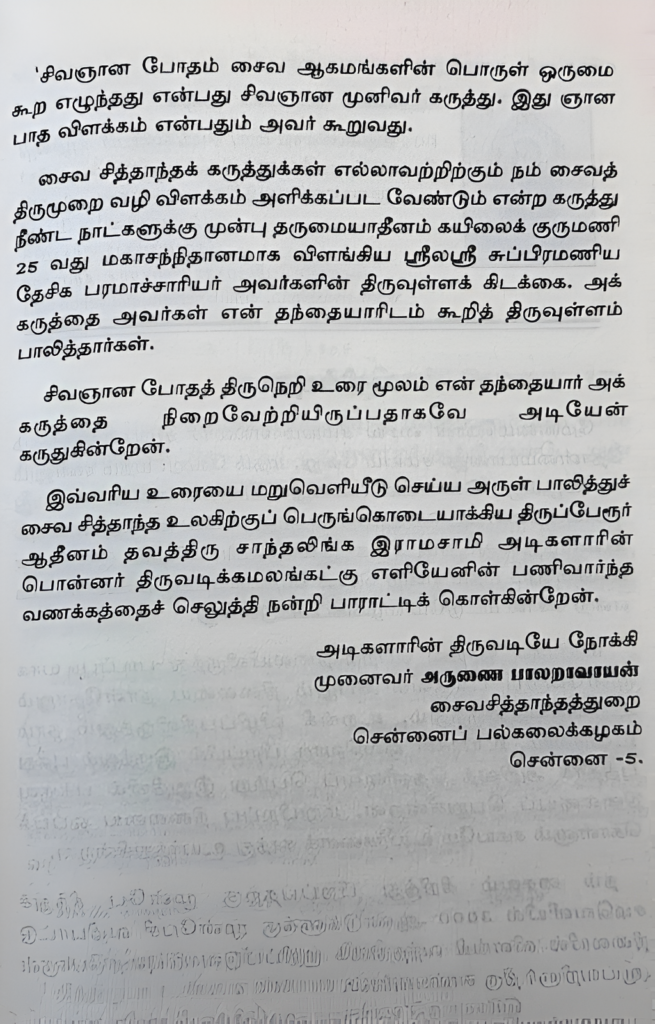 'சிவஞான போதம் சைவ ஆகமங்களின் பொருள் ஒருமை
கூற எழுந்தது என்பது சிவஞான முனிவர் கருத்து. இது ஞான
பாத விளக்கம் என்பதும் அவர் கூறுவது.
சைவ சித்தாந்தக் கருத்துக்கள் எல்லாவற்றிற்கும் நம் சைவத்
திருமுறை வழி விளக்கம் அளிக்கப்பட வேண்டும் என்ற கருத்து
நீண்ட நாட்களுக்கு முன்பு தருமையாதீனம் கயிலைக் குருமணி
25 வது மகாசந்நிதானமாக விளங்கிய ஸ்ரீலஸ்ரீ சுப்பிரமணிய
தேசிக பரமாச்சாரியர் அவர்களின் திருவுள்ளக் கிடக்கை. அக்
கருத்தை அவர்கள் என் தந்தையாரிடம் கூறித் திருவுள்ளம்
பாலித்தார்கள்.
சிவஞான போதத் திருநெறி உரை மூலம் என் தந்தையார் அக்
கருத்தை நிறைவேற்றியிருப்பதாகவே அடியேன்
கருதுகின்றேன்.
இவ்வரிய உரையை மறுவெளியீடு செய்ய அருள் பாலித்துச்
சைவ சித்தாந்த உலகிற்குப் பெருங்கொடையாக்கிய திருப்பேரூர்
ஆதீனம் தவத்திரு சாந்தலிங்க இராமசாமி அடிகளாரின்
பொன்னர் திருவடிக்கமலங்கட்கு எளியேனின் பணிவார்ந்த
வணக்கத்தைச் செலுத்தி நன்றி பாராட்டிக் கொள்கின்றேன்.
அடிகளாரின் திருவடியே நோக்கி
முனைவர் அருணை பாலறாவாயன்
சைவசித்தாந்தத்துறை
சென்னைப் பல்கலைக்கழகம்
சென்னை -5.